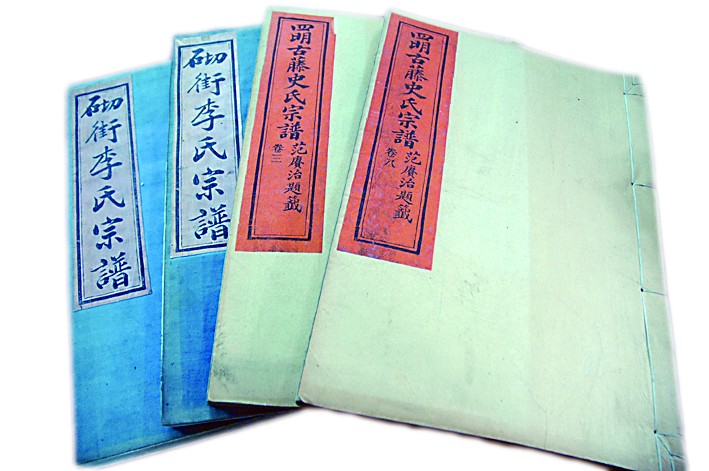 砌街李氏宗譜
砌街李氏宗譜
四明古藤史氏宗譜
卷三
范賡治題籤
四明古藤史氏宗譜
卷八
范賡治題籤